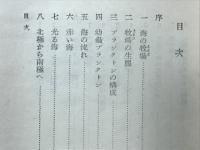 目次
序
一 海の牧場
二 牧場の生態
三 プランクトンの構成
四 幼毒プランクトン
五 海の流れ
六 赤い海
七 光る海
八 北極から南極へ
目次